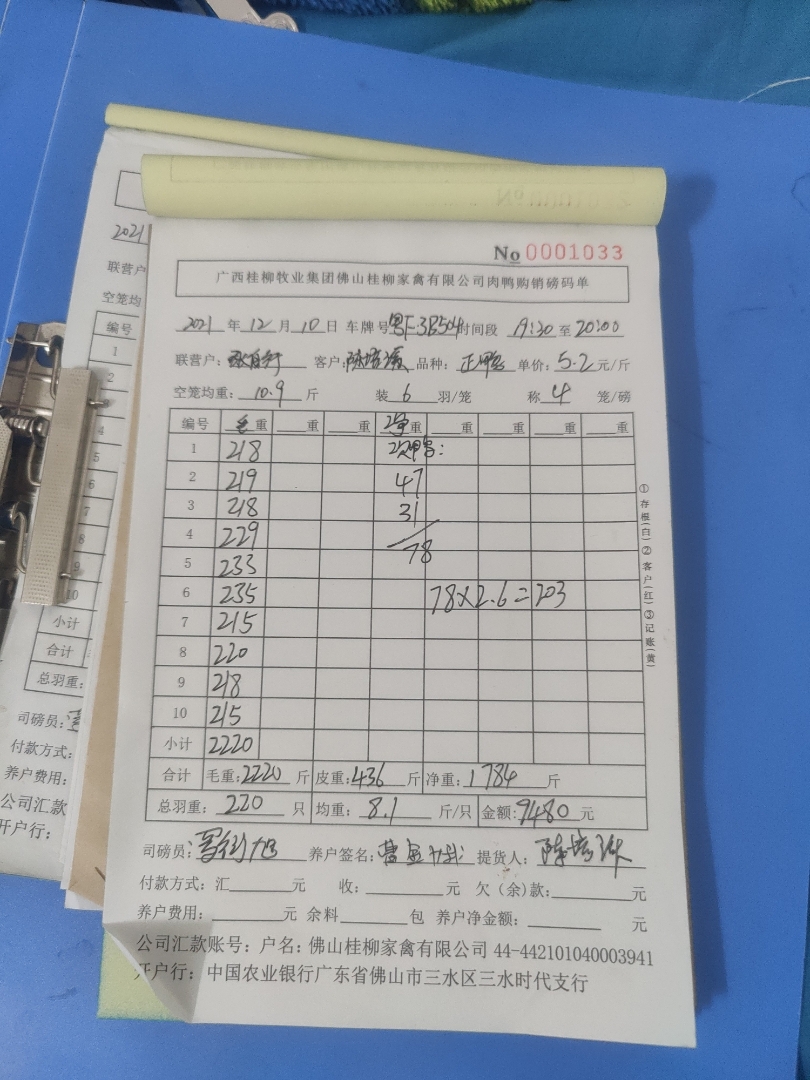 No 0001033
广西桂柳牧业集团佛山桂柳家禽有限公司肉鸭购销磅码单
2021 年 12 月 10 日 车牌号 粤F3B504 时间段 19:30 至 20:00
联营户: 客户: 品种: 正鸭 单价: 5.2 元/斤
空笼均重: 10.9 斤 装 6 羽/笼 称 4 笼/磅
编号 毛重 重 重 净重 重 重 重 重
1 218 次鸭:
2 219 47
3 218 31
4 229
5 233 78
6 235 78×2.6=203
7 215
8 220
9 218
10 215
小计 2220
合计 毛重: 2220 斤 皮重: 436 斤 净重: 1784 斤
总羽重: 220 只 均重: 8.1 斤/只 金额: 9480 元
司磅员: 养户签名: 提货人:
付款方式: 汇 元 收: 元 欠(余)款: 元
养户费用: 元 余料 包 养户净金额: 元
公司汇款账号: 户名: 佛山桂柳家禽有限公司 44-442101040003941
开户行: 中国农业银行广东省佛山市三水区三水时代支行
①存根(白)②客户(红)③记账(黄)
2021
联营户
空笼均
编号
1
2
4
5
6
7
8
9
10
小计
合计
总羽重:
司磅员:
付款方式:
养户费用:
公司汇款
开户行: